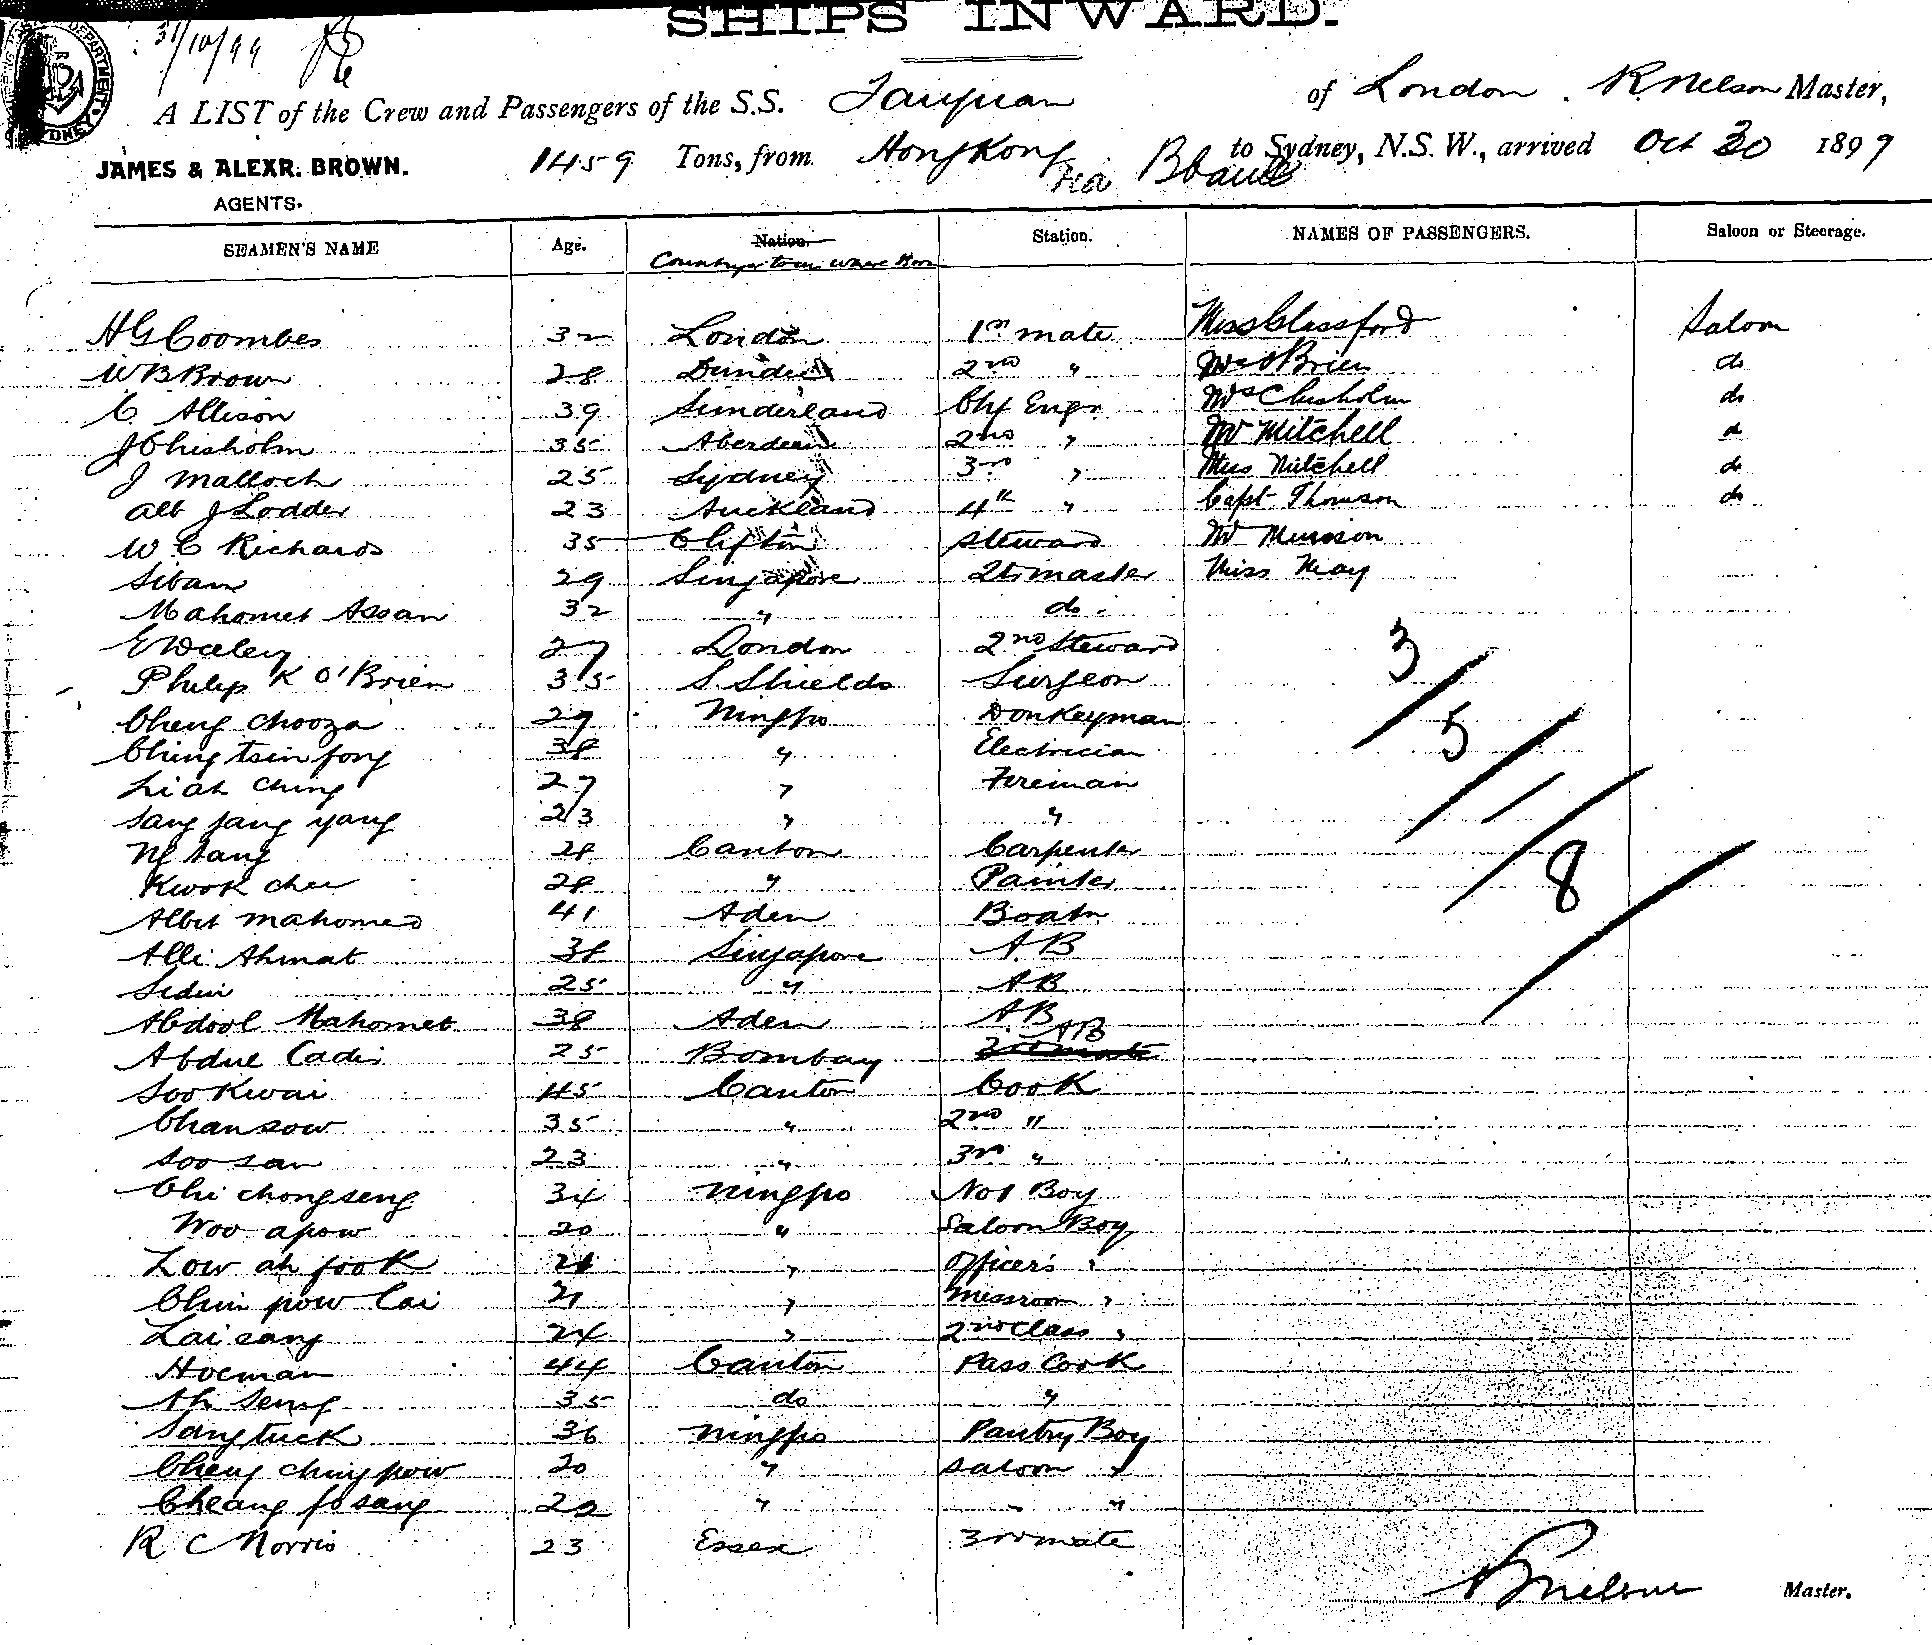 SHIPS INWARD.
31/10/99
A LIST of the Crew and Passengers of the S.S. Taiyuan of London. R. Nelson Master,
JAMES & ALEXR. BROWN. 1459 Tons, from Hong Kong via to Sydney, N.S.W., arrived Oct 30 1899
AGENTS.
SEAMEN'S NAME Age. Nation. Station. NAMES OF PASSENGERS. Saloon or Steerage.
Country or town where Born
H G Coombes 32 London 1st mate Miss Glassford Saloon
W B Brown 28 Dundee 2nd " Mrs O'Brien do
C Allison 39 Sunderland Chf Engr Mrs Chisholm do
J Chisholm 35 Aberdeen 2nd " Mr Mitchell do
J Malloch 25 Sydney 3rd " Miss Mitchell do
Alb J Lodder 23 Auckland 4th " Capt Thomson do
W C Richards 35 Clifton Steward Mr Murison
Siban 29 Singapore Qtrmaster Miss May
Mahomet Assan 32 " do.
E Waley 27 London 2nd Steward
Philip K O'Brien 35 S. Shields Surgeon
3
Cheng Chooza 29 Ningpo Donkeyman
5
Ching tsin fong 38 " Electrician
Liah Ching 27 " Fireman
Sang fang yang 23 " "
Ng Sang 28 Canton Carpenter
8
Kwok Chee 28 " Painter
Albit Mahomed 41 Aden Boatn
Alli Ahmat 38 Singapore A.B
Sidin 25 " AB
Abdool Mahomet 38 Aden AB
Abdul Cadir 25 Bombay 3rd mate AB
Soo Kwai 45 Canton Cook
Chan sow 35 " 2nd "
Soo san 23 " 3rd "
Chi chong seng 34 Ningpo No 1 Boy
Woo apow 20 " Saloon Boy
Low ah fook 21 " Officer's "
Chin pow Cai 21 " Messroom "
Lai sang 24 " 2nd Class "
Hoeman 44 Canton Pass Cook
Ah Seng 35 do "
Sang tuck 36 Ningpo Pantry Boy
Cheng ching pow 20 " Saloon "
Cheang fo sang 22 " " "
R C Norris 23 Essex 3rd mate
R Nelson Master.